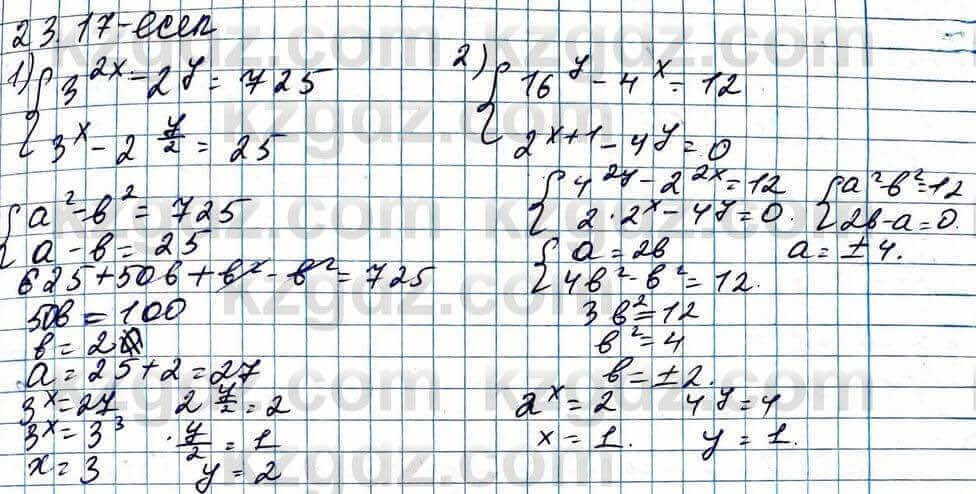 23.17-есеп
1) { 3^{2x} - 2^y = 725
3^x - 2^{y/2} = 25
{ a² - b² = 725
a - b = 25
625 + 50b + b² - b² = 725
50b = 100
b = 2
a = 25 + 2 = 27
3^x = 27   2^{y/2} = 2
3^x = 3³   y/2 = 1
x = 3   y = 2
2) { 16^y - 4^x = 12
2^{x+1} - 4^y = 0
{ 4^{2y} - 2^{2x} = 12   { a² - b² = 12
2 · 2^x - 4^y = 0.   2b - a = 0.
{ a = 2b   a = ±4.
4b² - b² = 12.
3b² = 12
b² = 4
b = ±2.
2^x = 2   4^y = 4
x = 1.   y = 1.
kzgdz.com